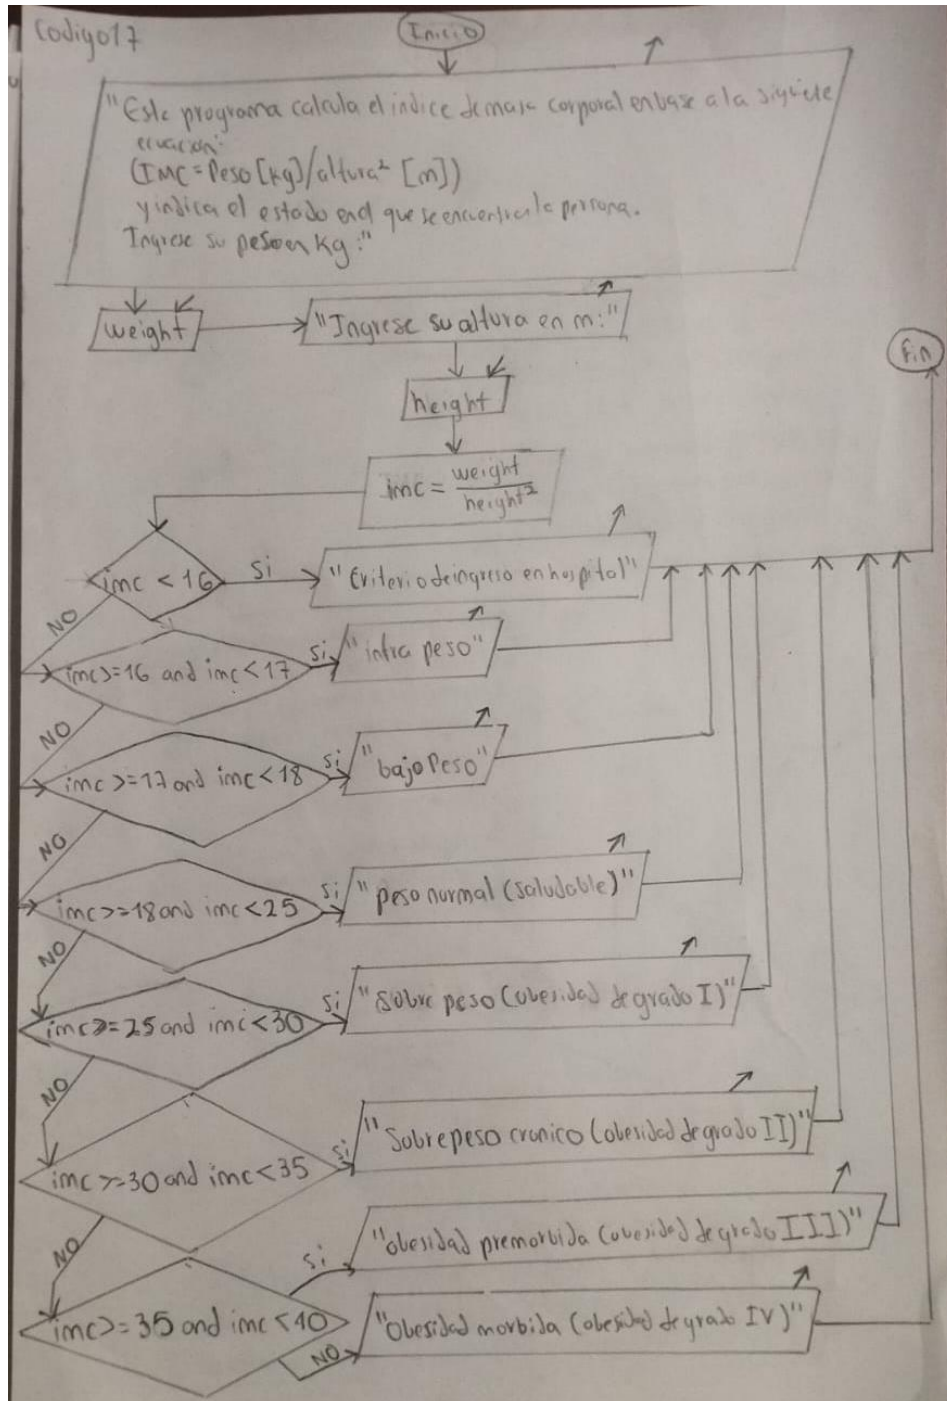 Codigo17
Inicio
"Este programa calcula el indice de masa corporal en base a la siguiete
ecuación:
(IMC = Peso [kg]/altura² [m])
y indica el estado en el que se encuentra la persona.
Ingrese su peso en kg:"
weight
"Ingrese su altura en m:"
Fin
height
imc = weight
height²
imc < 16
Si
"Criterio de ingreso en hospital"
NO
imc>=16 and imc<17
Si
"infra peso"
NO
imc>=17 and imc<18
Si
"bajo Peso"
NO
imc>=18 and imc<25
Si
"peso normal (saludable)"
NO
imc>=25 and imc<30
Si
"sobre peso (obesidad de grado I)"
NO
imc>=30 and imc<35
Si
"Sobre peso cronico (obesidad de grado II)"
NO
Si
"obesidad premorbida (obesidad de grado III)"
imc>=35 and imc<40
NO
"Obesidad morbida (obesidad de grado IV)"